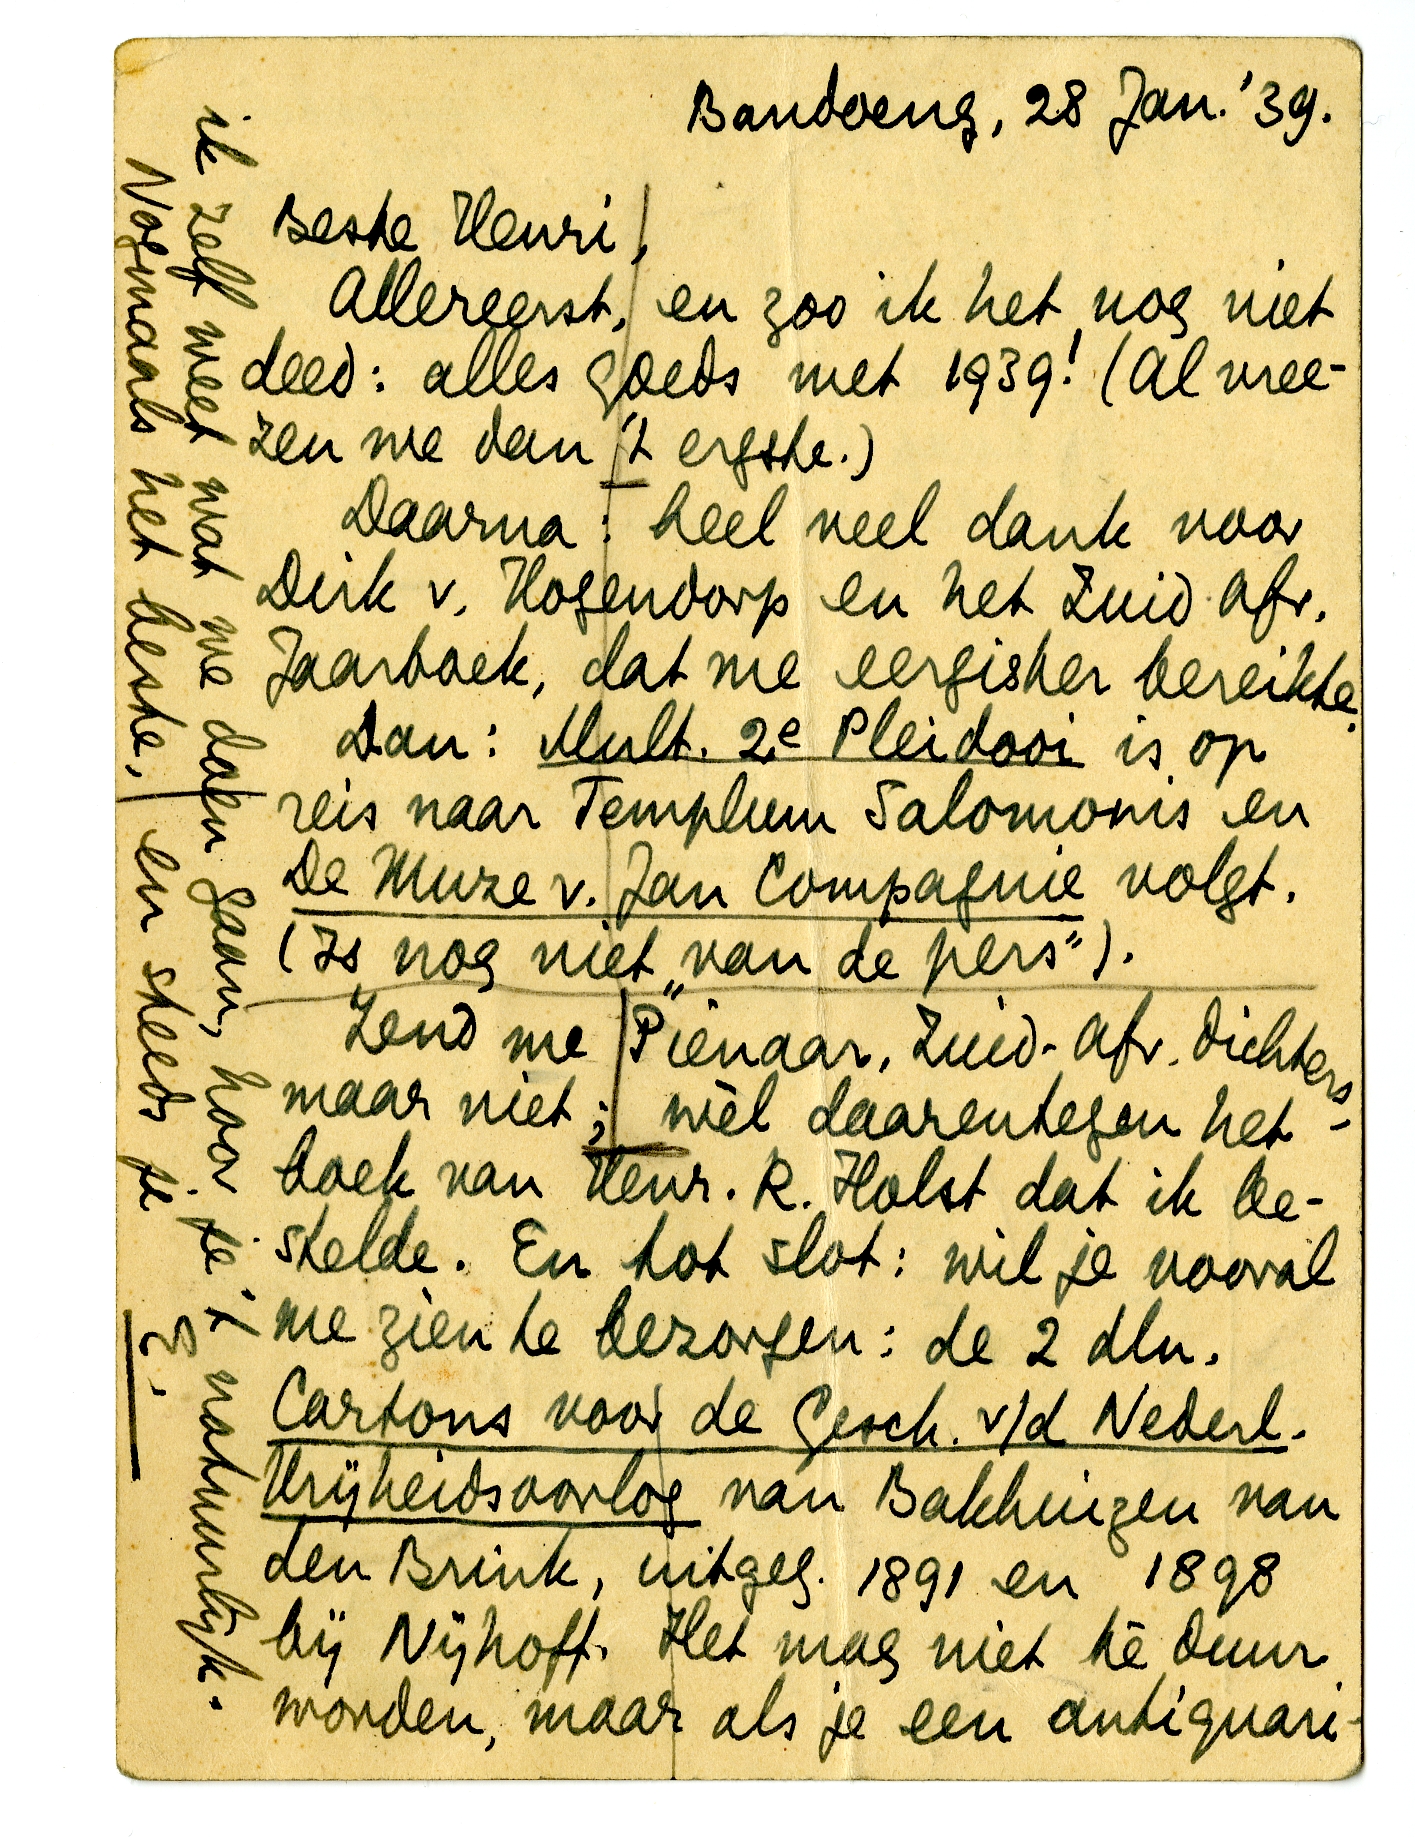 Bandoeng, 28 Jan. '39.
Beste Henri,
Allereerst, en zoo ik het nog niet
deed: alles goeds met 1939! (Al vree-
zen we dan 't ergste.)
Daarna: heel veel dank voor
Dirk v. Hogendorp en het Zuid Afr.
Jaarboek, dat me eergister bereikte.
Dan: Mult. 2e Pleidooi is op
reis naar Templum Salomonis en
De Muze v. Jan Compagnie volgt.
(Is nog niet „van de pers”).
Zend me Pienaar, Zuid-Afr. dichters
maar niet; wèl daarentegen het
boek van Henr. R. Holst dat ik be-
stelde. En tot slot: wil je vooral
me zien te bezorgen: de 2 dln.
Cartons voor de Gesch. v/d Nederl.
Vrijheidsoorlog van Bakhuizen van
den Brink, uitgeg. 1891 en 1898
bij Nijhoff. Het mag niet té duur
worden, maar als je een antiquari-
ik zelf weet wat we doen gaan, hoor je 't natuurlijk.
Nogmaals het beste, en steeds je
E.